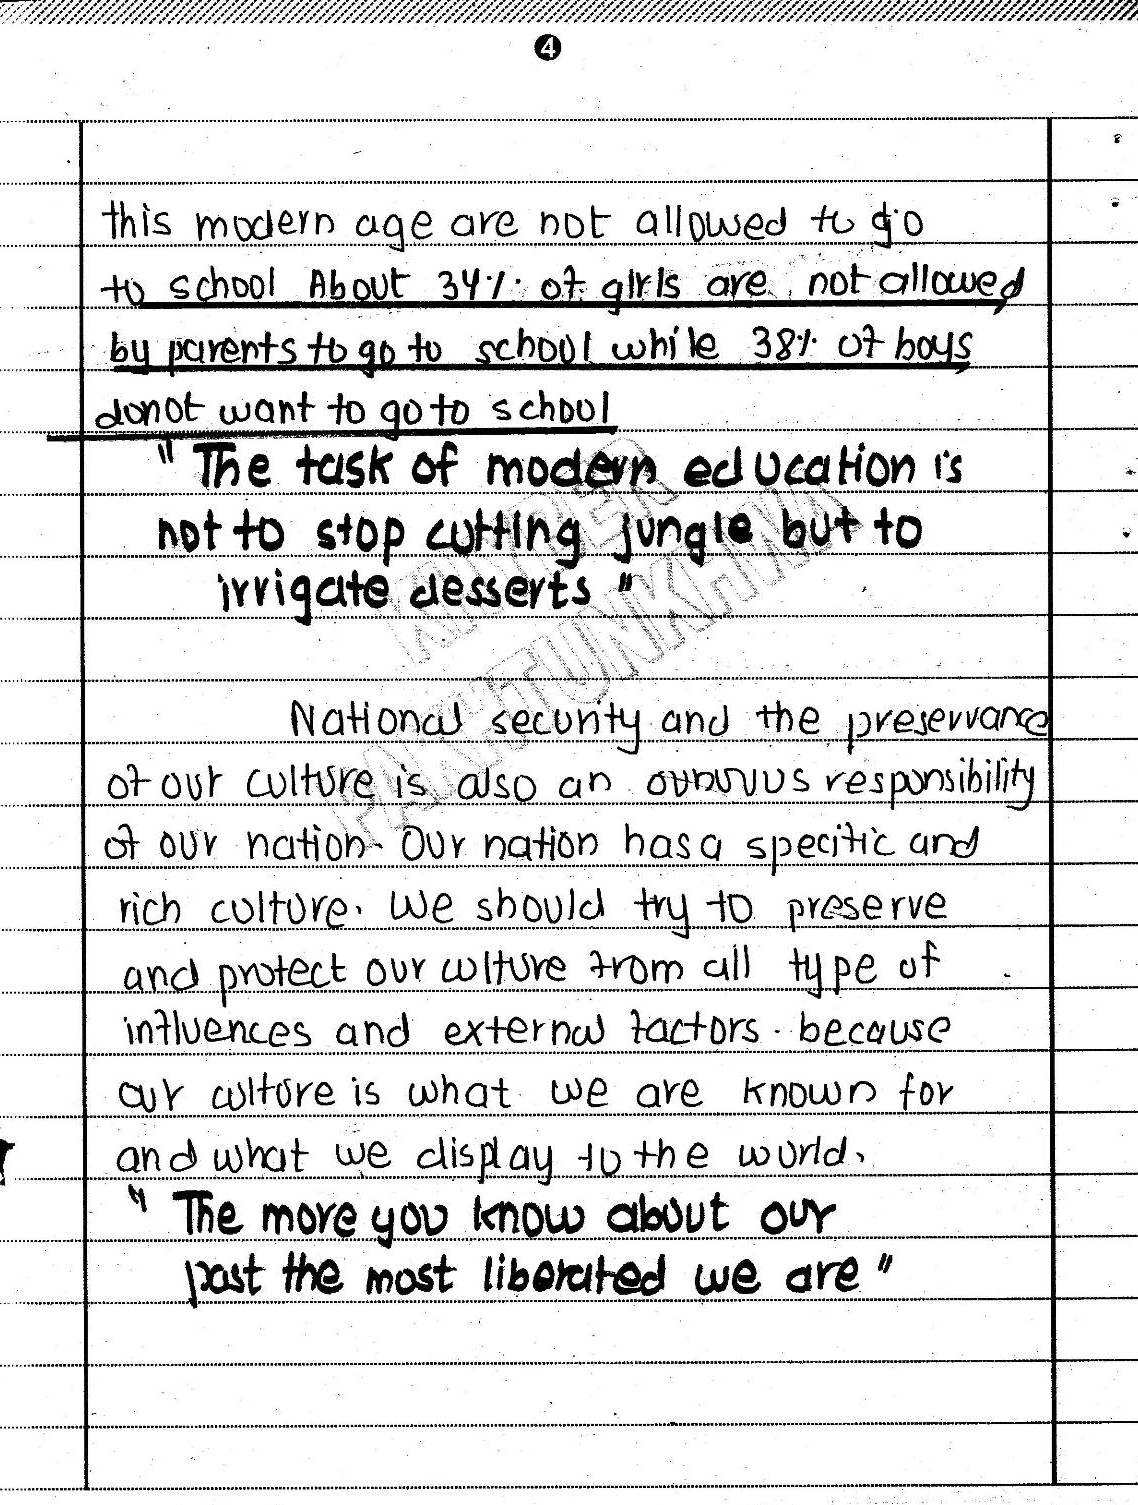 4
this modern age are not allowed to go
to school About 34% of girls are not allowed
by parents to go to school while 38% of boys
donot want to go to school
" The task of modern education is
not to stop cutting jungle but to
irrigate desserts "
KHYBER
PAKHTUNKHWA
National security and the preservance
of our culture is also an responsibility
of our nation. Our nation has a specific and
rich culture. We should try to preserve
and protect our culture from all type of
influences and external factors. because
our culture is what we are known for
and what we display to the world.
" The more you know about our
past the most liberated we are "